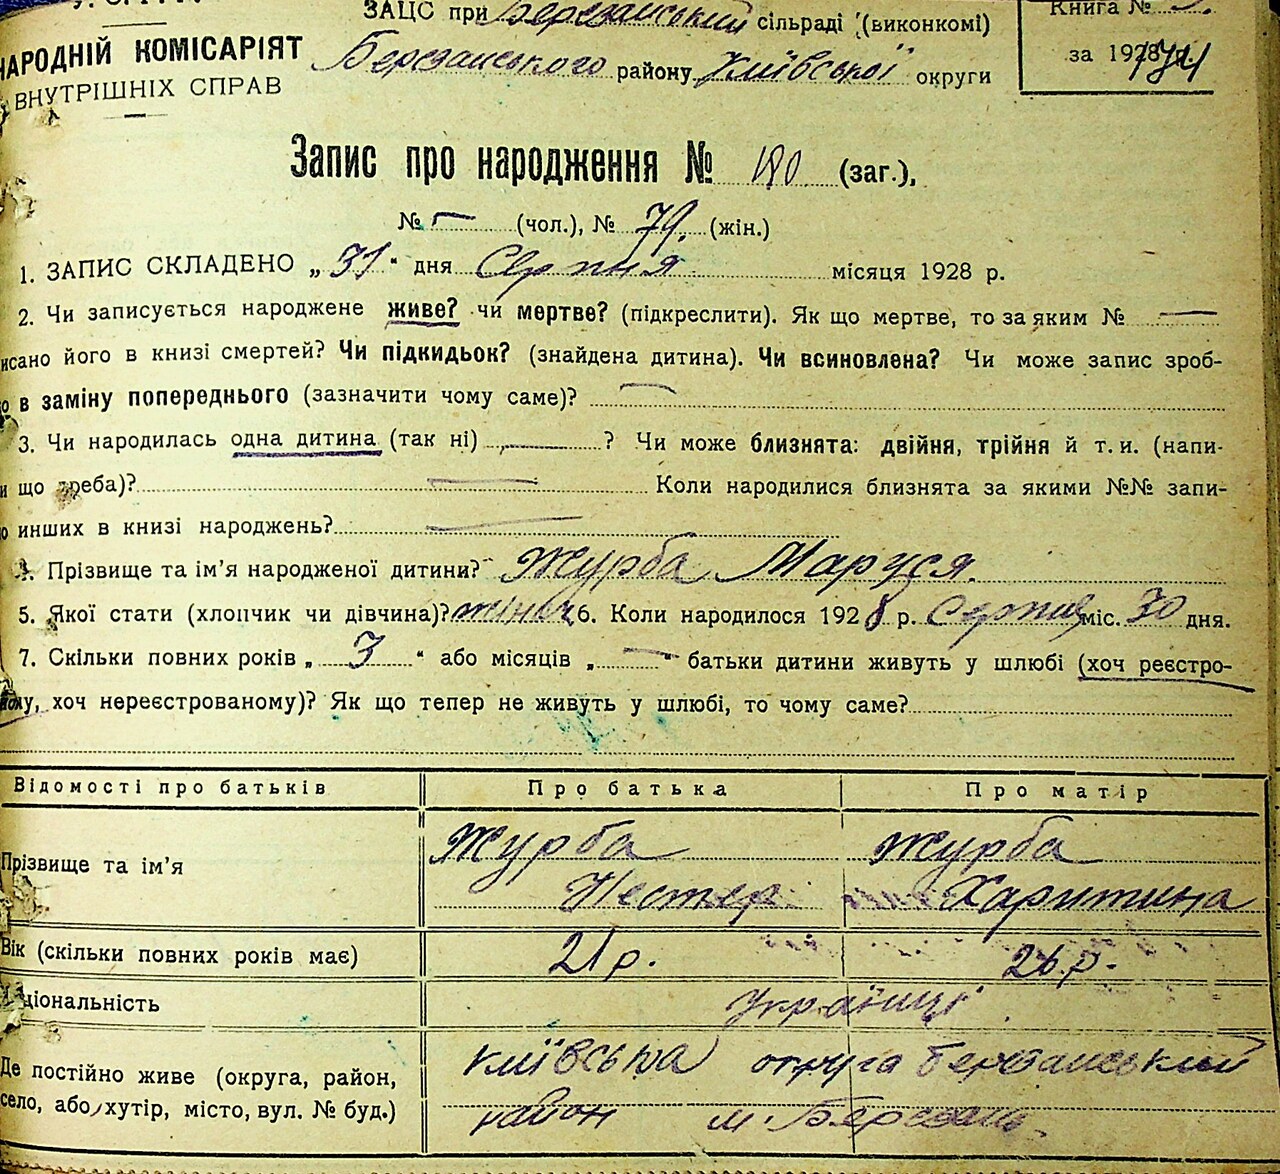 ЗАЦС при Березанський сільраді (виконкомі)
Книга №
НАРОДНІЙ КОМІСАРІЯТ
Березанського району Київської округи
за 1928 174
ВНУТРІШНІХ СПРАВ
Запис про народження № 180 (заг.),
№ — (чол.), № 79. (жін.)
1. ЗАПИС СКЛАДЕНО „31“ дня Серпня місяця 1928 р.
2. Чи записується народжене живе? чи мертве? (підкреслити). Як що мертве, то за яким № —
исано його в книзі смертей? Чи підкидьок? (знайдена дитина). Чи всиновлена? Чи може запис зроб-
о в заміну попереднього (зазначити чому саме)? —
3. Чи народилась одна дитина (так ні) — ? Чи може близнята: двійня, трійня й т. и. (напи-
и що треба)? — Коли народилися близнята за якими №№ запи-
о инших в книзі народжень? —
4. Прізвище та ім’я народженої дитини? Журба Маруся.
5. Якої стати (хлопчик чи дівчина)? жіноч 6. Коли народилося 1928 р. Серпня міс. 30 дня.
7. Скільки повних років „3“ або місяців „—“ батьки дитини живуть у шлюбі (хоч реєстро-
ому, хоч нереєстрованому)? Як що тепер не живуть у шлюбі, то чому саме?
Відомості про батьків Про батька Про матір
Прізвище та ім’я Журба Журба
Нестер Харитина
Вік (скільки повних років має) 21 р. 26 р.
Національність Українці
Де постійно живе (округа, район, Київська округа Березанський
село, або хутір, місто, вул. № буд.) район м. Березань